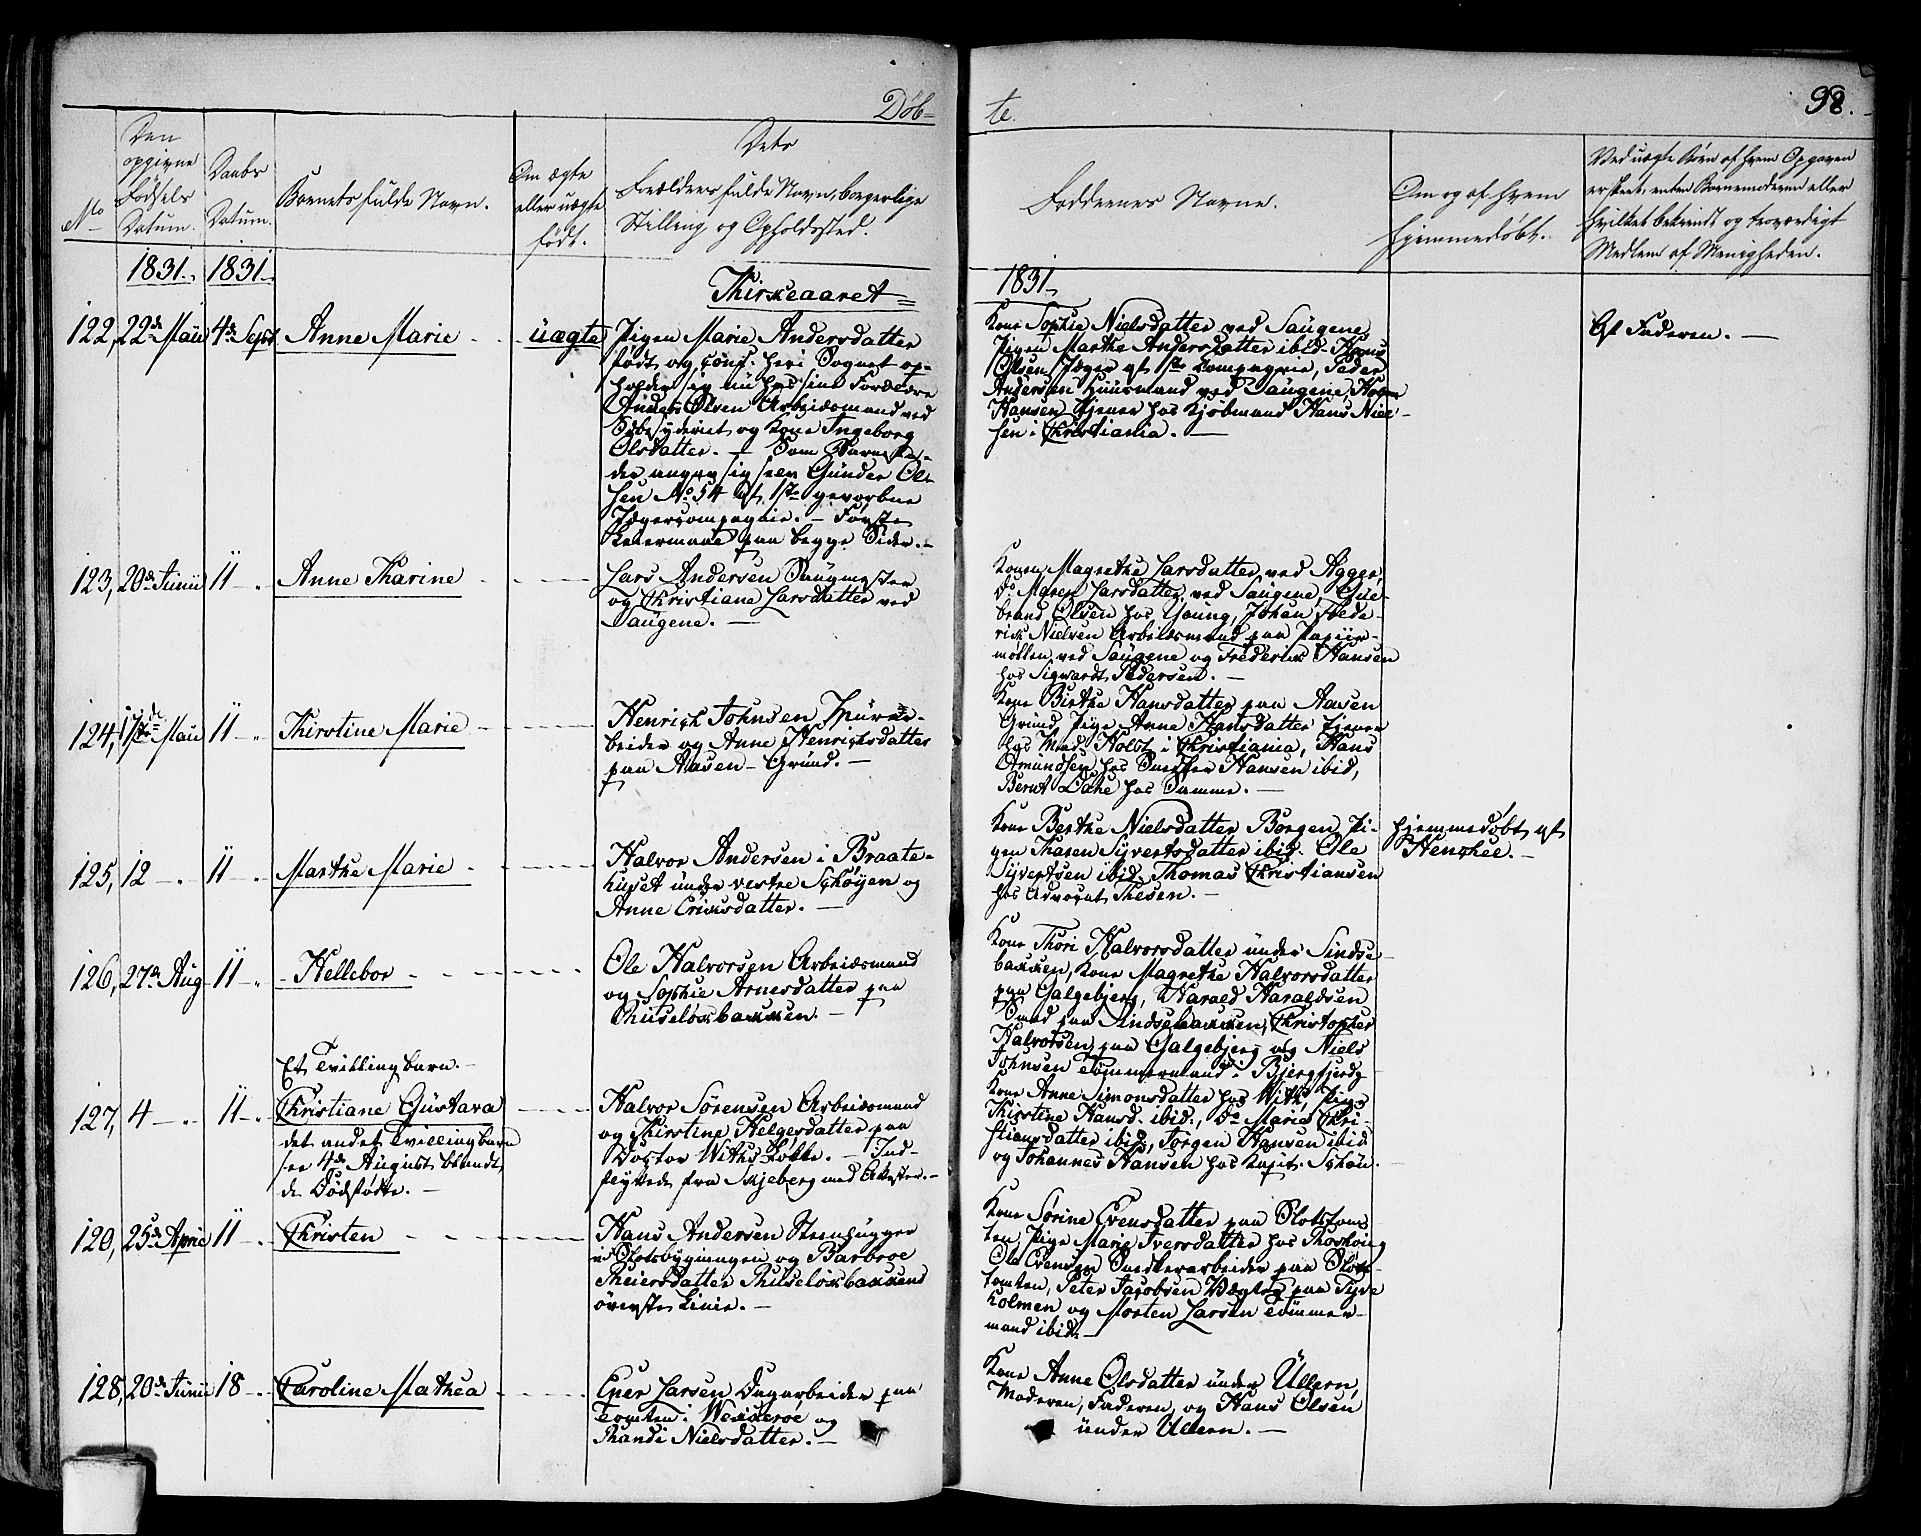 Döb-
te.
98.
No
Den
opgivne
Födsels
Datum.
Daabs
Datum.
Barnets fulde Navn.
Om ægte
eller uægte
födt.
Dets
Forældres fulde Navn, borgerlige
Stilling og Opholdssted.
Faddernes Navne.
Om og af hvem
hjemmedöbt.
Ved uægte Börn af hvem Opgaven
er skeet, enten Barnemoderen eller
hvilket bekiendt og troværdigt
Medlem af Menigheden.
1831. 1831.
Kirkeaaret
1831.
122, 22de Maii 4de Septr Anne Marie uægte
Pigen Marie Andersdatter
födt og conf. her i Sognet op-
holder sig nu hos sine Forældre
Anders Olsen Arbeidsmand ved
og Kone Ingeborg
Olsdatter. — Som Barnefa-
der angav sig selv Gunder Ol-
sen No 54 af 1ste gevorbne
Jægercompagnie. — Förste
Leiermaal paa begge Sider. —
Kone Sophie Nielsdatter ved Saugene,
Pigen Marthe Andersdatter ibid. Hans
Olsen Jæger af 1ste Compagnie, Peder
Andersen Huusmand ved Saugene, Hans
Hansen tjener hos Kjöbmand Hans Niel-
sen i Christiania. —
Af Faderen. —
123, 20de Junii 11 — Anne Karine
Lars Andersen Saugmester
og Christiane Larsdatter ved
Saugene. —
Konen Magrethe Larsdatter ved Agger,
Do Maren Larsdatter ved Saugene, Gul-
brand Olsen hos Young, Johan Frede-
rich Nielsen Arbeidsmand paa Papiir-
möllen ved Saugene og Frederik Hansen
hos Sigwardt Pedersen. —
124, 17de Maii 11 — Kirstine Marie
Henrich Johnsen Muurar-
beider og Anne Henrichsdatter
paa Aasen-Grund. —
Kone Birthe Hansdatter paa Aasen
Grund, Pige Anne Hansdatter tjener
hos Mad. Holst i Christiania, Hans
Amundsen hos Snedker Hansen ibid,
Bernt Lahe hos Samme. —
125, 12 — 11 — Marthe Marie
Halvor Andersen i Braate-
huset under vestre Schöyen og
Anne Eriksdatter. —
Kone Berthe Nielsdatter Borgen, Pi-
gen Karen Syvertsdatter ibid. Ole
Syvertsen ibid. Thomas Christiansen
hos Advocat Thesen. —
hjemmedöbt af
Henschee. —
126, 27de Aug 11 — Hellebor
Ole Halvorsen Arbeidsmand
og Sophie Arnesdatter paa
Ruseløkbakken. —
Kone Kari Halvorsdatter under Linds-
bakken, Kone Magrethe Halvorsdatter
paa Galgebjerg, Harald Haraldsen
Sand paa Lindsebakken, Christopher
Halvorsen paa Galgebjerg og Niels
Johnsen Tömmermand i
Et Tvillingbarn. —
127, 4 — 11 — Christiane Gustava
det andet Tvillingbarn
see 4de August blandt
de Dödfödte. —
Halvor Sörensen Arbeidsmand
og Kirstine Helgesdatter paa
Doctor Withs Lökke. — Ind-
flyttede fra Skjeberg med Attester. —
Kone Anne Simonsdatter hos With, Pige
Kirstine Hansd. ibid., Do Marie Chri-
stiansdatter ibid, Jörgen Hansen ibid
og Johannes Hansen hos Capit. Schön.
120, 25de April 11 — Christen
Hans Andersen Steenhugger
i Slotsbygningen og Barbroe
Reiersdatter Ruseløkbakkens
överste Linie. —
Kone Sörine Evensdatter paa Slotstom-
ten, Pige Marie Iversdatter hos
Ole Evensen Snedkerarbeider paa Slots-
tomten, Peter Jacobsen Vægter paa Tyve
holmen og Morten Larsen Tömmer-
mand ibid. —
128, 20de Junii 18 — Caroline Mathea
Ener Larsen Dagarbeider paa
Tomten i Wækkeröe og
Randi Nielsdatter. —
Kone Anne Olsdatter under Ullern,
Moderen, Faderen, og Hans Olsen
under Ullern. —